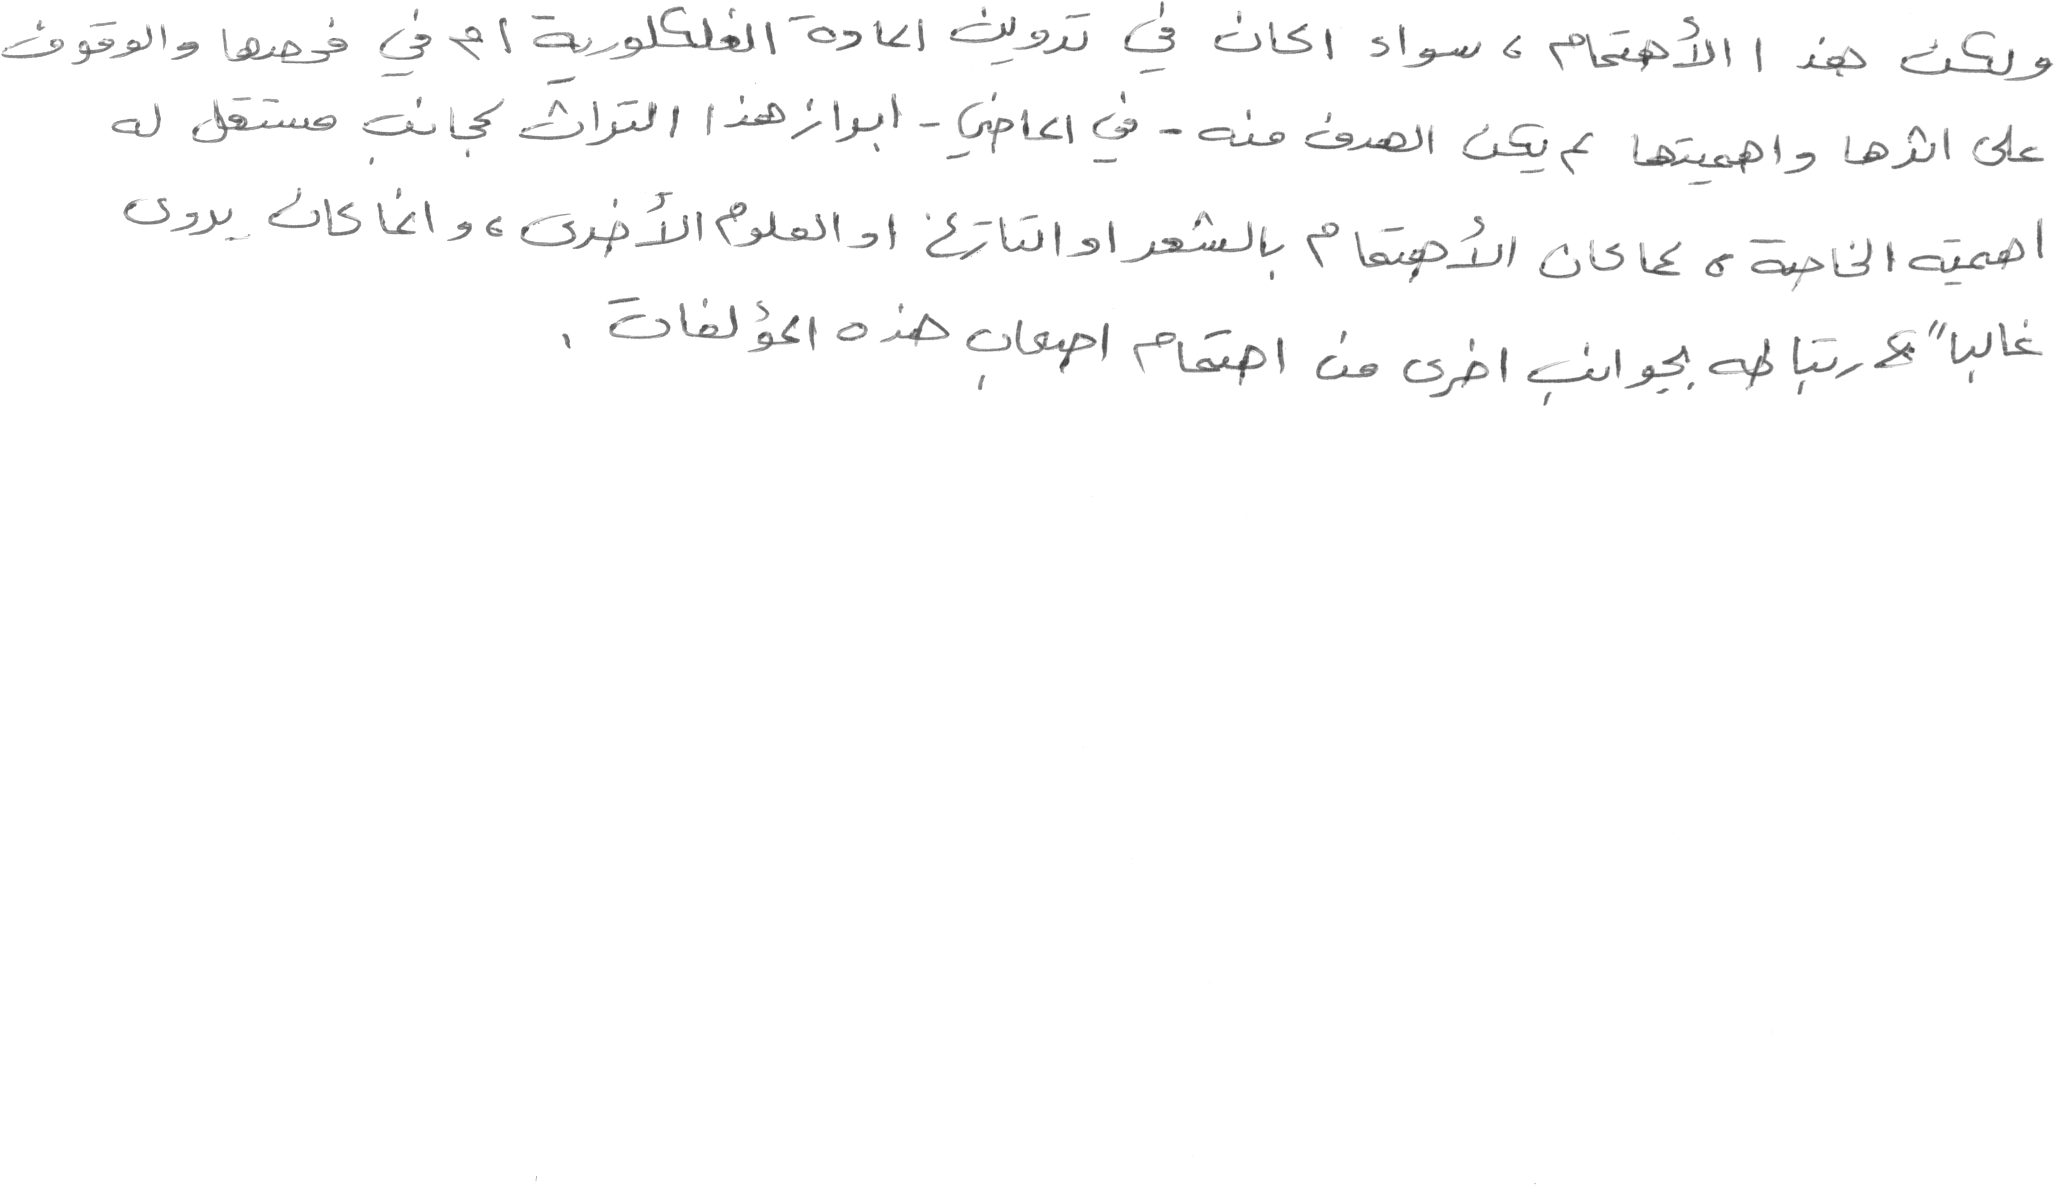 ولكن هذا الأهتمام ، سواء اكان في تدوين المادة الفلكلورية ام في فحصها والوقوف
على اثرها واهميتها لم يكن الهدف منه - في الماضي - ابراز هذا التراث كجانب مستقل له
اهميته الخاصة ، كما كان الأهتمام بالشعر او التاريخ او العلوم الأخرى ، وانما كان يروى
غالبا" لارتباطه بجوانب اخرى من اهتمام اصحاب هذه المؤلفات .